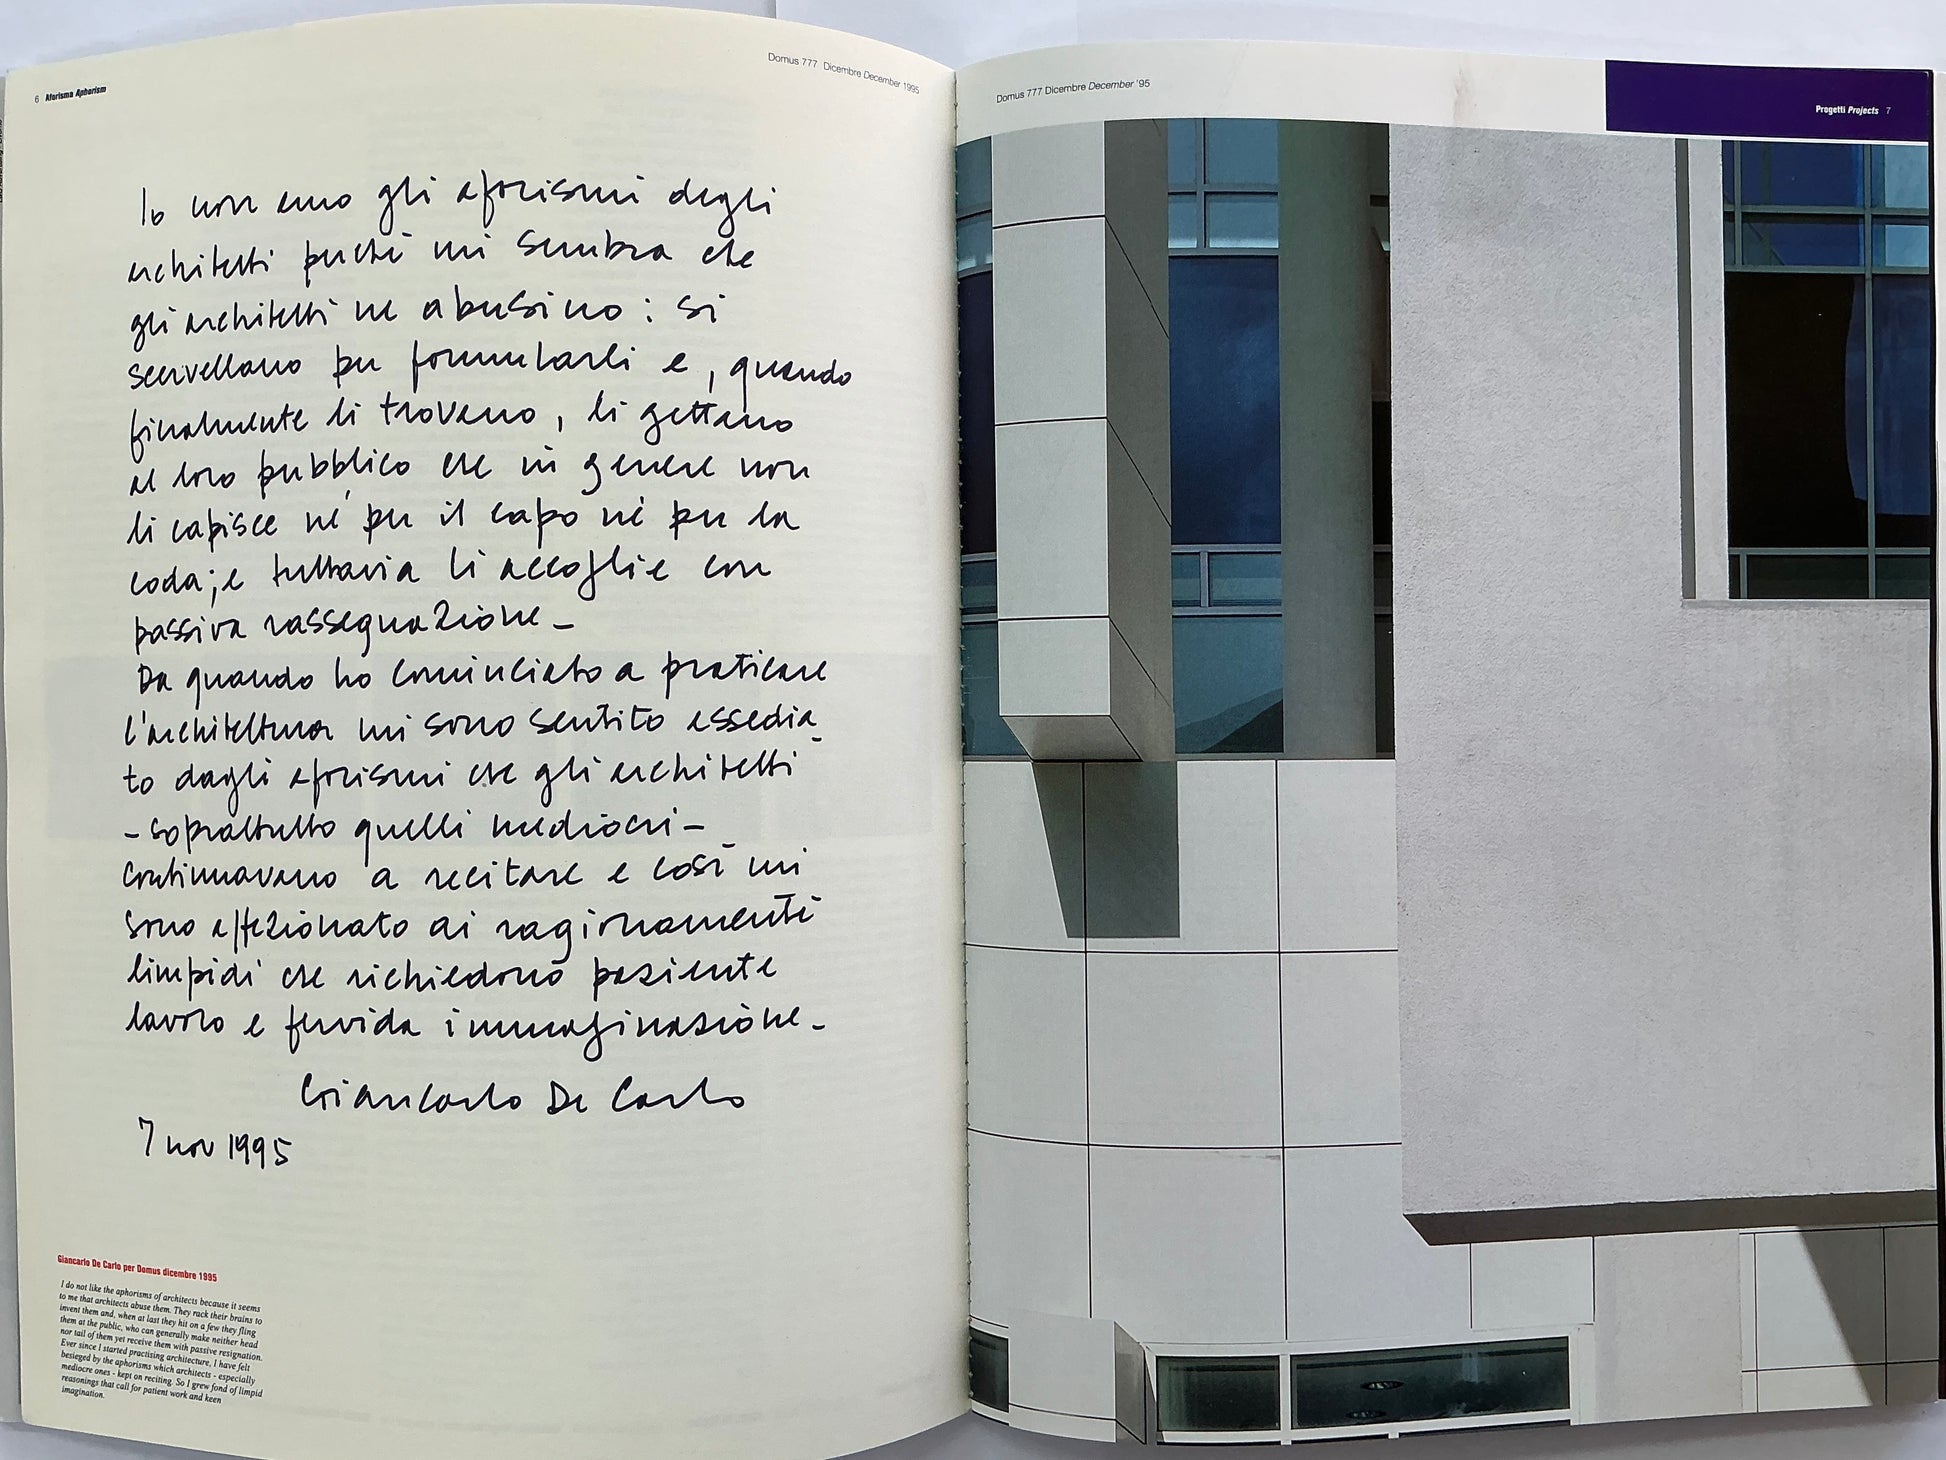 6 Aforisma Aphorism
Domus 777 Dicembre December 1995
Io non amo gli aforismi degli
architetti perché mi sembra che
gli architetti ne abusino: si
scervellano per formularli e, quando
finalmente li trovano, li gettano
al loro pubblico che in genere non
li capisce né per il capo né per la
coda; e tuttavia li accoglie con
passiva rassegnazione_
Da quando ho cominciato a praticare
l'architettura mi sono sentito assedia_
to dagli aforismi che gli architetti
-soprattutto quelli mediocri-
continuavano a recitare e così mi
sono affezionato ai ragionamenti
limpidi che richiedono paziente
lavoro e fervida immaginazione_
Giancarlo De Carlo
7 nov 1995
Giancarlo De Carlo per Domus dicembre 1995
I do not like the aphorisms of architects because it seems
to me that architects abuse them. They rack their brains to
invent them and, when at last they hit on a few they fling
them at the public, who can generally make neither head
nor tail of them yet receive them with passive resignation.
Ever since I started practising architecture, I have felt
besieged by the aphorisms which architects - especially
mediocre ones - kept on reciting. So I grew fond of limpid
reasonings that call for patient work and keen
imagination.
Domus 777 Dicembre December '95
Progetti Projects 7